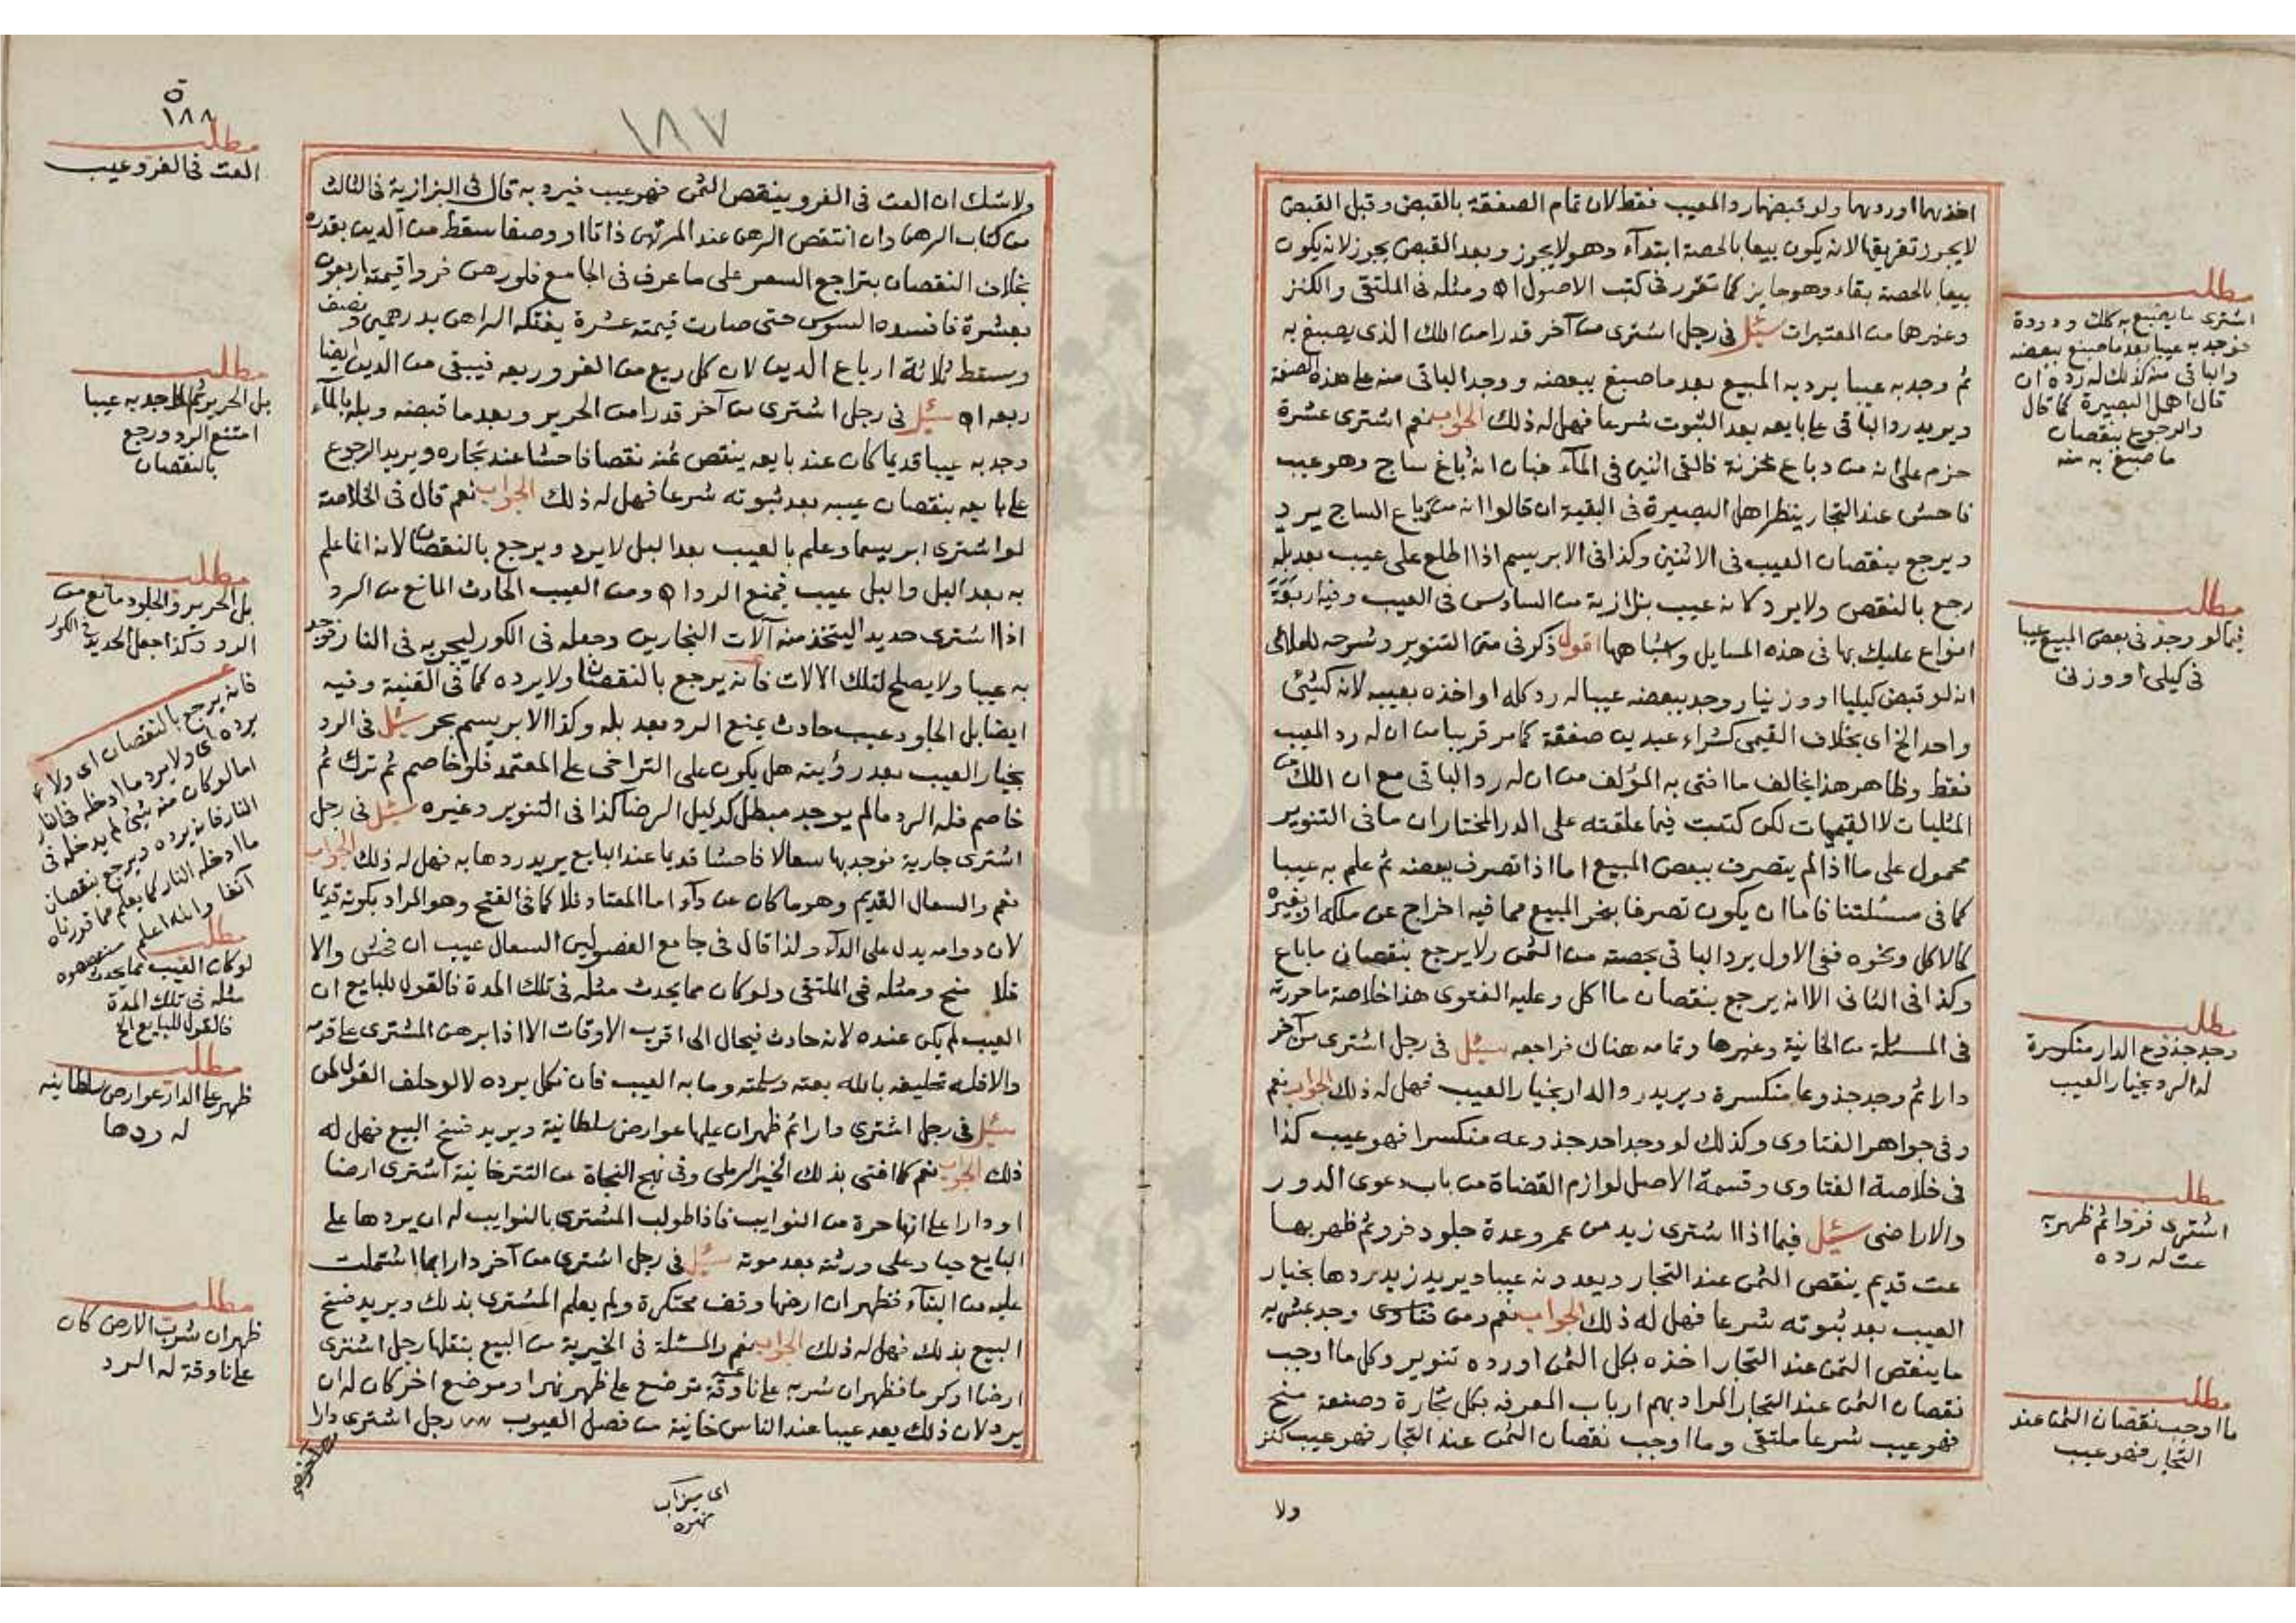 اخذهما اوردهما ولو قبضهما رد المعيب فقط لان تمام الصفقة بالقبض وقبل القبض
لا يجوز تفريقها لانه يكون بيعا بالحصة ابتدآء وهو لا يجوز وبعد القبض يجوز لانه يكون
بيعا بالحصة بقاء وهو جايز كما تقرر فى كتب الاصول اه ومثله فى الملتقى والكنز
وغيرها من المعتبرات سئل فى رجل اشترى من آخر قدرا من اللك الذى يصبغ به
ثم وجد به عيبا يرد به المبيع بعد ما صبغ ببعضه ووجد الباقى منه على هذه الصفة
ويريد رد الباقى على بايعه بعد الثبوت شرعا فهل له ذلك الجواب نعم اشترى عشرة
حزم على انه من دباغ فالقى اثنين فى المآء فبان انه دباغ ساج وهو عيب
فاحش عند التجار ينظر اهل البصيرة فى البقية ان قالوا انه من دباغ الساج يرد
ويرجع بنقصان العيب فى الاثنين وكذا فى الابريسم اذا اطلع على عيب بعد بله
رجع بالنقص ولا يرد كانه عيب بزازية من السادس فى العيب وفيه اربعة
انواع عليك بها فى هذه المسايل واشباهها اقول ذكر فى متن التنوير وشرحه للعلائى
انه لو قبض كيليا او وزنيا ووجد ببعضه عيبا له رد كله او اخذه بعيبه لانه كشئ
واحد الخ اى بخلاف القيمى كشراء عبدين صفقة كما مر قريبا من ان له رد المعيب
فقط وظاهر هذا يخالف ما افتى به المؤلف من ان له رد الباقى مع ان اللك من
المثليات لا القيميات لكن كتبت فيما علقته على الدر المختار ان ما فى التنوير
محمول على ما اذا لم يتصرف ببعض المبيع اما اذا تصرف ببعضه ثم علم به عيبا
كما فى مسئلتنا فاما ان يكون تصرفا بنحو البيع مما فيه اخراج عن ملكه او بغيره
كالاكل ونحوه ففى الاول يرد الباقى بحصته من الثمن ولا يرجع بنقصان ما باع
وكذا فى الثانى الا انه يرجع بنقصان ما اكل وعليه الفتوى هذا خلاصة ما حررته
فى المسئلة من الخانية وغيرها وتمامه هناك فراجعه سئل فى رجل اشترى من آخر
دارا ثم وجد جذوعا منكسرة ويريد رد الدار بخيار العيب فهل له ذلك الجواب نعم
وفى جواهر الفتاوى وكذلك لو وجد احد جذوعه منكسرا فهو عيب كذا
فى خلاصة الفتاوى وقسمة الاصل لوازم القضاة من باب دعوى الدور
والاراضى سئل فيما اذا اشترى زيد من عمرو عدة جلود فرو ثم ظهر بها
عت قديم ينقص الثمن عند التجار ويعدونه عيبا ويريد زيد ردها بخيار
العيب بعد ثبوته شرعا فهل له ذلك الجواب نعم ومن وجد بمشريه
ما ينقص الثمن عند التجار اخذه بكل الثمن او رده تنوير وكل ما اوجب
نقصان الثمن عند التجار المراد بهم ارباب المعرفة بكل تجارة وصنعة منح
فهو عيب شرعا ملتقى وما اوجب نقصان الثمن عند التجار فهو عيب كنز
ولا
مطلب
اشترى ما يصبغ به كلك ودودة
فوجد به عيبا بعد ما صبغ ببعضه
والباقى منه كذلك له رده ان
قال اهل البصيرة كما قال
والرجوع بنقصان
ما صبغ به منه
مطلب
فيما لو وجد فى بعض المبيع عيبا
فى كيلى او وزنى
مطلب
وجد جذوع الدار منكسرة
له الرد بخيار العيب
مطلب
اشترى فروا ثم ظهر به
عت له رده
مطلب
ما اوجب نقصان الثمن عند
التجار فهو عيب
١٨٧
١٨٨
ولا شك ان العت فى الفرو ينقص الثمن فهو عيب فيرد به قال فى البزازية فى الثالث
من كتاب الرهن وان انتقص الرهن عند المرتهن ذاتا او وصفا سقط من الدين بقدره
بخلاف النقصان بتراجع السعر على ما عرف فى الجامع فلو رهن فروا قيمته اربعون
بعشرة فافسده السوس حتى صارت قيمته عشرة يفتكه الراهن بدرهمين ونصف
ويسقط ثلاثة ارباع الدين لان كل ربع من الفرو ربعه فيبقى من الدين ايضا
ربعه اه سئل فى رجل اشترى من آخر قدرا من الحرير وبعد ما قبضه وبله بالمآء
وجد به عيبا قديما كان عند بايعه ينقص ثمنه نقصا فاحشا عند تجاره ويريد الرجوع
على بايعه بنقصان عيبه بعد ثبوته شرعا فهل له ذلك الجواب نعم قال فى الخلاصة
لو اشترى ابريسما وعلم بالعيب بعد البل لا يرد ويرجع بالنقصان لانه انما علم
به بعد البل والبل عيب فيمنع الرد اه ومن العيب الحادث المانع من الرد
اذا اشترى حديدا ليتخذ منه آلات النجارين وجعله فى الكور ليجربه فى النار فوجد
به عيبا ولا يصلح لتلك الالات فانه يرجع بالنقصان ولا يرده كما فى القنية وفيه
ايضا بل الجلود عيب حادث يمنع الرد بعد بله وكذا الابريسم بحر سئل فى الرد
بخيار العيب بعد رؤيته هل يكون على التراخى على المعتمد فلو خاصم ثم ترك ثم
خاصم فله الرد ما لم يوجد مبطل كدليل الرضا كذا فى التنوير وغيره سئل فى رجل
اشترى جارية فوجد بها سعالا فاحشا قديما عند البايع يريد ردها به فهل له ذلك الجواب
نعم والسعال القديم وهو ما كان عن دآء اما المعتاد فلا كما فى الفتح وهو المراد بكونه قديما
لان دوامه يدل على الدآء ولذا قال فى جامع الفصولين السعال عيب ان فحش والا
فلا منح ومثله فى الملتقى ولو كان مما يحدث مثله فى تلك المدة فالقول للبايع ان
العيب لم يكن عنده لانه حادث فيحال الى اقرب الاوقات الا اذا برهن المشترى على قدمه
والا فله تحليفه بالله بعته وسلمته وما به العيب فان نكل يرده لا لو حلف
سئل فى رجل اشترى دارا ثم ظهر ان عليها عوارض سلطانية ويريد فسخ البيع فهل له
ذلك الجواب نعم كما افتى بذلك الخير الرملى وفى نهج النجاة عن التترخانية اشترى ارضا
او دارا على انها حرة من النوايب فاذا طولب المشترى بالنوايب له ان يردها على
البايع حيا وعلى ورثته بعد موته سئل فى رجل اشترى من آخر دارا بما اشتملت
عليه من البنآء فظهر ان ارضها وقف محتكرة ولم يعلم المشترى بذلك ويريد فسخ
البيع بذلك فهل له ذلك الجواب نعم والمسئلة فى الخيرية من البيع بنقلها رجل اشترى
ارضا او كرما فظهر ان شربه على ناوقة توضع على ظهر نهر او موضع اخر كان له ان
يرد لان ذلك يعد عيبا عند الناس خانية من فصل العيوب رجل اشترى دارا
اى ميزاب
نهره
مطلب
العت فى الفرو عيب
مطلب
بل الحرير ثم وجد به عيبا
امتنع الرد ورجع
بالنقصان
مطلب
بل الحرير والجلود مانع من
الرد وكذا جعل الحديد فى الكور
فانه يرجع بالنقصان اى ولا
يرده اى ولا يرد ما ادخله فى النار
اما لو كان منه شئ لم يدخله فى
النار فانه يرده ويرجع بنقصان
ما ادخله النار كما يعلم مما قررناه
آنفا والله اعلم
مطلب
لو كان العيب مما يحدث
مثله فى تلك المدة
فالقول للبايع الخ
مطلب
ظهر على الدار عوارض سلطانيه
له ردها
مطلب
ظهر ان شرب الارض كان
على ناوقة له الرد